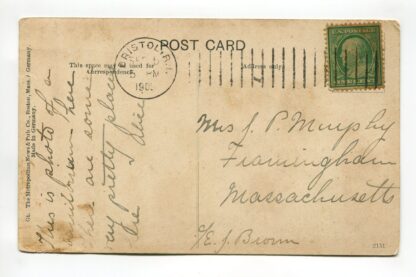 POST CARD
This space may be used for
Correspondence
Address only.
BRISTOL, R.I.
PM
U.S. POSTAGE
This is photo of a
here
There are some
very pretty places
Alice
Mrs J. P. Murphy
Framingham
Massachusetts
c/o E. J. Brown
The Metropolitan News & Pub. Co., Boston, Mass. / Germany.
Made in Germany.